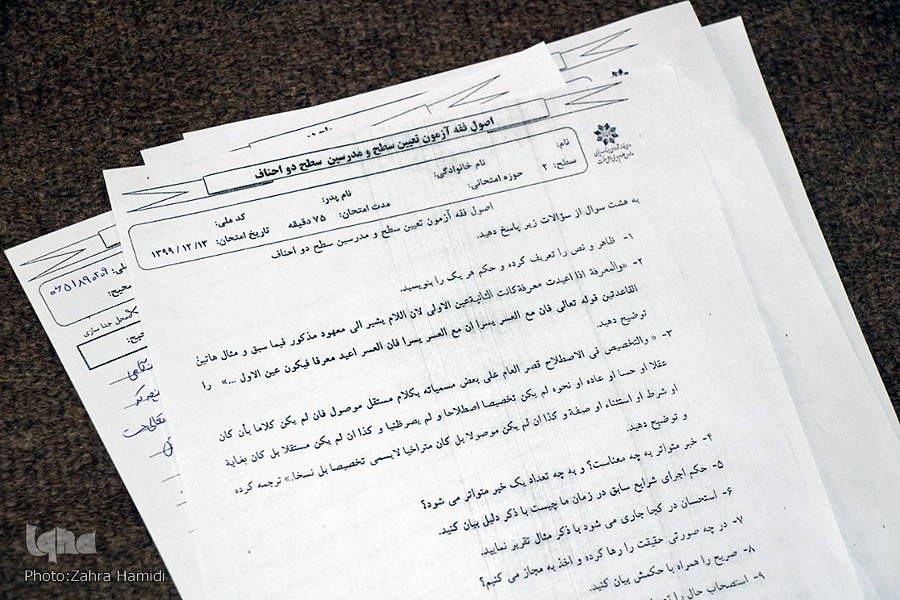 اصول فقه آزمون تعیین سطح و مدرسین سطح دو احناف
نام:
نام خانوادگی:
نام پدر:
کد ملی:
سطح: ۲
حوزه امتحانی:
مدت امتحان: ۷۵ دقیقه
تاریخ امتحان: ۱۳۹۹/۱۲/۱۳
اصول فقه آزمون تعیین سطح و مدرسین سطح دو احناف
به هشت سوال از سؤالات زیر پاسخ دهید.
۱- ظاهر و نص را تعریف کرده و حکم هر یک را بنویسید.
۲- «والمعرفة اذا اعیدت معرفة کانت الثانیةعین الاولی لان اللام یشیر الی معهود مذکور فیما سبق و مثال هاتین
القاعدتین قوله تعالی فان مع العسر یسرا ان مع العسر یسرا فان العسر اعید معرفا فیکون عین الاول ...» را
توضیح دهید.
۳- « والتخصیص فی الاصطلاح قصر العام علی بعض مسمیاته بکلام مستقل موصول فان لم یکن کلاما بأن کان
عقلا او حسا او عاده او نحوه لم یکن تخصیصا اصطلاحا و لم یصرظنیا و کذا ان لم یکن مستقلا بل کان بغایة
او شرط او استثناء او صفة و کذا ان لم یکن موصولا بل کان متراخیا لایسمی تخصیصا بل نسخا.» ترجمه کرده
و توضیح دهید.
۴- خبر متواتر به چه معناست؟ و به چه تعداد یک خبر متواتر می شود؟
۵- حکم اجرای شرایع سابق در زمان ما چیست با ذکر دلیل بیان کنید.
۶- استحسان در کجا جاری می شود با ذکر مثال تقریر نمایید.
۷- در چه صورتی حقیقت را رها کرده و اخذ به مجاز می کنیم؟
۸- صریح را همراه با حکمش بیان کنید.
۹- استصحاب حال را
محل جدا سازی
iqna
Photo:Zahra Hamidi